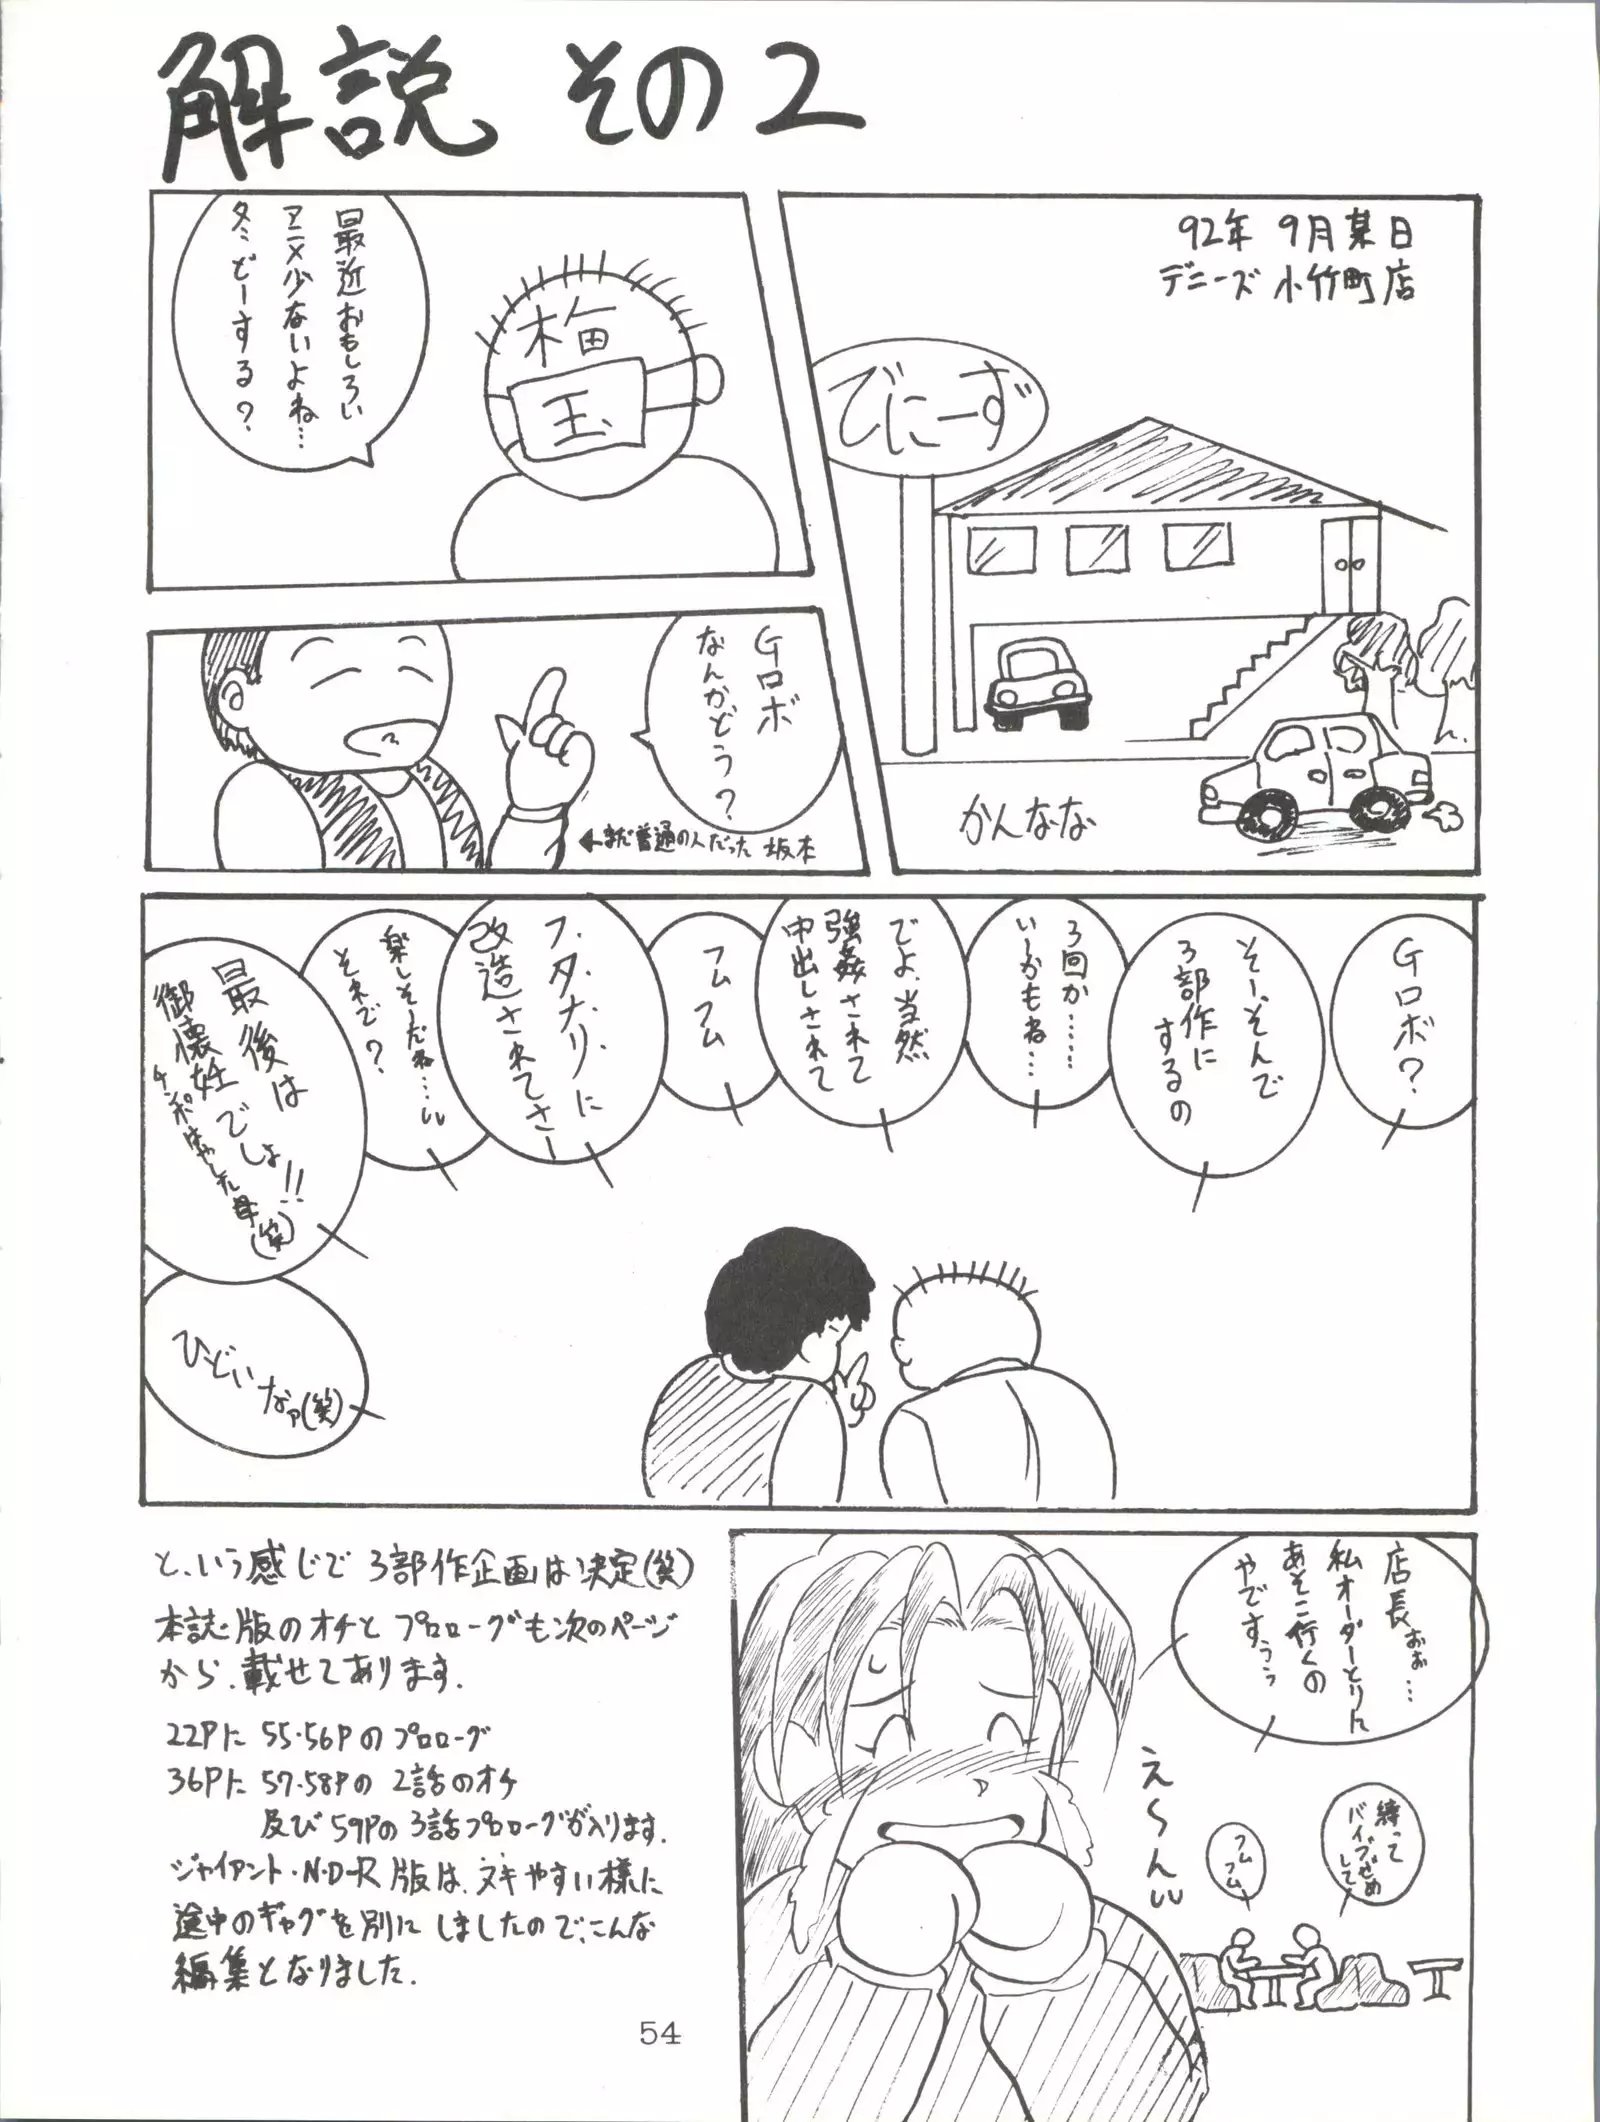 解説 その2
92年 9月某日
デニーズ 小竹町店
でにーず
かんなな
最近おもしろい
アニメ少ないよね…
冬どーする?
梅
玉
Gロボ
なんかどう?
←まだ普通の人だった 坂本
Gロボ?
そー、そんで
3部作に
するの
3回か……
いーかもね…
でよ、当然
強姦されて
中出しされて
フム
フム
フ・タ・ナ・リ・に
改造されてさー
楽しそーだね…
それで?
最後は
御懐妊でしょ!!
チンポはやした母(笑)
ひどいなァ(笑)
店長ぉぉ…
私オーダーとりに
あそこ行くの
やですぅぅ
え〜ん
縛って
バイブぜめ
して
フム
フム
と、いう感じで 3部作企画は決定(笑)
本誌版のオチと プロローグも次のページ
から、載せてあります.
22Pに 55・56Pのプロローグ
36Pに 57・58Pの 2話のオチ
及び 59Pの 3話プロローグが入ります.
ジャイアント・N・D-R版は、ヌキやすい様に
途中のギャグを別に しましたので、こんな
編集となりました.
54